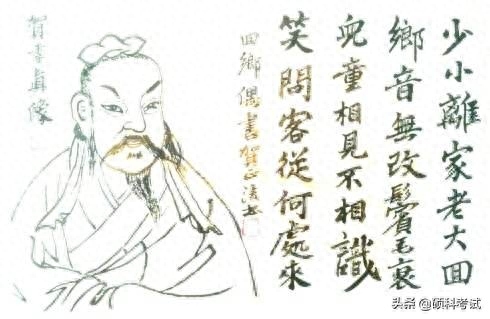 少小離家老大回
鄉音無改鬢毛衰
兒童相見不相識
笑問客從何處來
回鄉偶書 賀
賀季真像
头条 @硕科考试